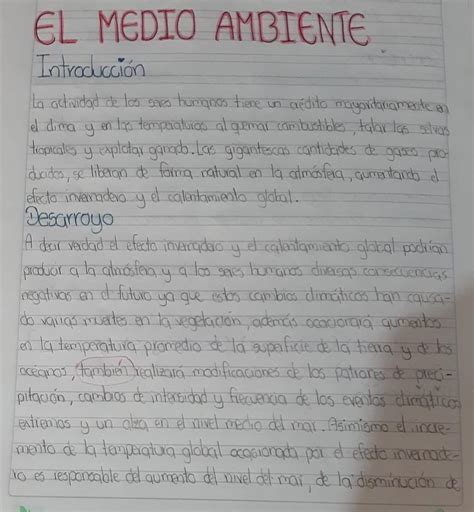 EL MEDIO AMBIENTE
Introducción
La actividad de los seres humanos tiene un crédito mayoritariamente en
el clima y en las temperaturas al quemar combustibles, talar las selvas
tropicales y explotar ganado. Las gigantescas cantidades de gases pro-
ducidos, se liberan de forma natural en la atmósfera, aumentando el
efecto invernadero y el calentamiento global.
Desarroyo
A decir verdad el efecto invernadero y el calentamiento global podrían
producir a la atmósfera y a los seres humanos diversas consecuencias
negativas en el futuro ya que estos cambios climáticos han causa-
do varias muertes en la vegetación, además ocacionará aumentos
en la temperatura promedio de la superficie de la tierra y de los
océanos, también realizará modificaciones de los patrones de preci-
pitación, cambios de intensidad y frecuencia de los eventos climáticos
extremos y un alza en el nivel medio del mar. Asimismo el incre-
mento de la temperatura global ocasionada por el efecto invernade-
ro es responsable del aumento del nivel del mar, de la disminución de